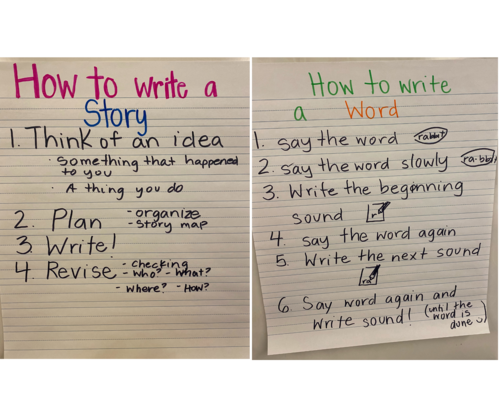 How to write a
Story
1. Think of an idea
• something that happened
to you
• A thing you do
2. Plan - organize
- story map
3. Write!
4. Revise - checking
- Who? - What?
- Where? - How?
How to write
a Word
1. say the word rabbit
2. say the word slowly ra-bb
3. Write the beginning
sound r
4. say the word again
5. Write the next sound
ra
6. Say word again and
write sound! (until the
word is
done